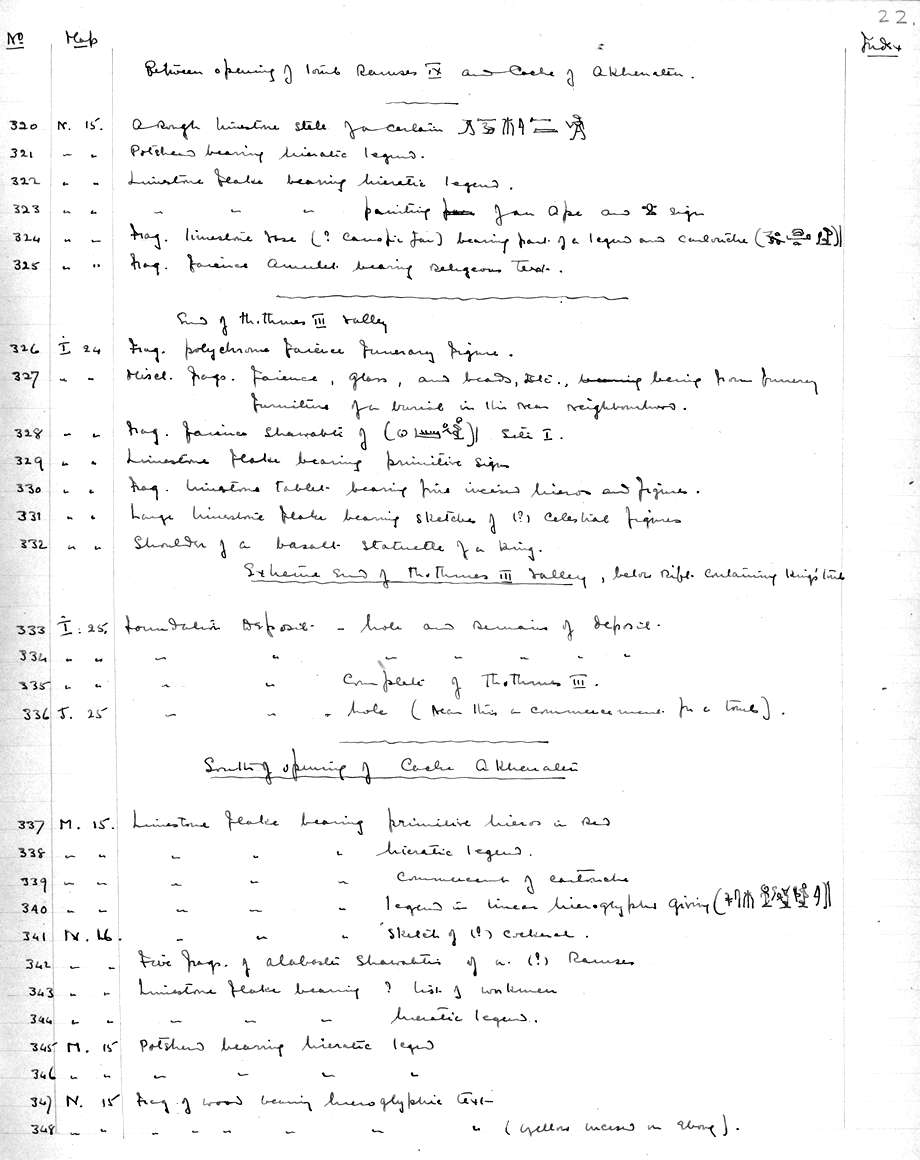 22.
No Map Index
Between opening of tomb Ramses IX and Cache of Akhenaten.
320 N. 15. A rough limestone stele for a certain
321 " " Potsherd bearing hieratic legend.
322 " " Limestone flake bearing hieratic legend.
323 " " " " " painting of an Ape and sign
324 " " Frag. limestone vase (? Canopic Jar) bearing part of a legend and cartouche
325 " " Frag. faience Amulet bearing religeous Text.
End of Thothmes III Valley
326 I 24 Frag. polychrome faience funerary figure.
327 " " Miscl. frags. faience, glass, and beads, etc., being from funery
furniture of a burial in this near neighbourhood.
328 " " Frag. faience Shawabti of Seti I.
329 " " Limestone flake bearing primitive signs
330 " " Frag. limestone tablet bearing fine incised hieros and figures.
331 " " Large limestone flake bearing sketches of (?) Celestial figures
332 " " Shoulder of a basalt statuette of a King.
Extreme End of Thothmes III Valley, below Rift containing King's tomb
333 I : 25. Foundation Deposit - hole and remains of deposit.
334 " " " " " " " " "
335 " " " " Complete of Thothmes III.
336 J. 25 " " " hole (near this a commencement for a tomb).
South of opening of Cache Akhenaten
337 M. 15. Limestone flake bearing primitive hieros in red
338 " " " " " hieratic legend.
339 " " " " " commencement of cartouche
340 " " " " " legend in linear hieroglyphs giving
341 N. 16. " " " Sketch of (?) cockerel.
342 " " Five frags. of alabaster Shawabtis of a (?) Ramses
343 " " Limestone flake bearing ? list of workmen
344 " " " " " hieratic legend.
345 M. 15 Potsherd bearing hieratic legend
346 " " " " " "
347 N. 15 Frag of wood bearing hieroglyphic text
348 " " " " " " " " (yellow incised on ebony).